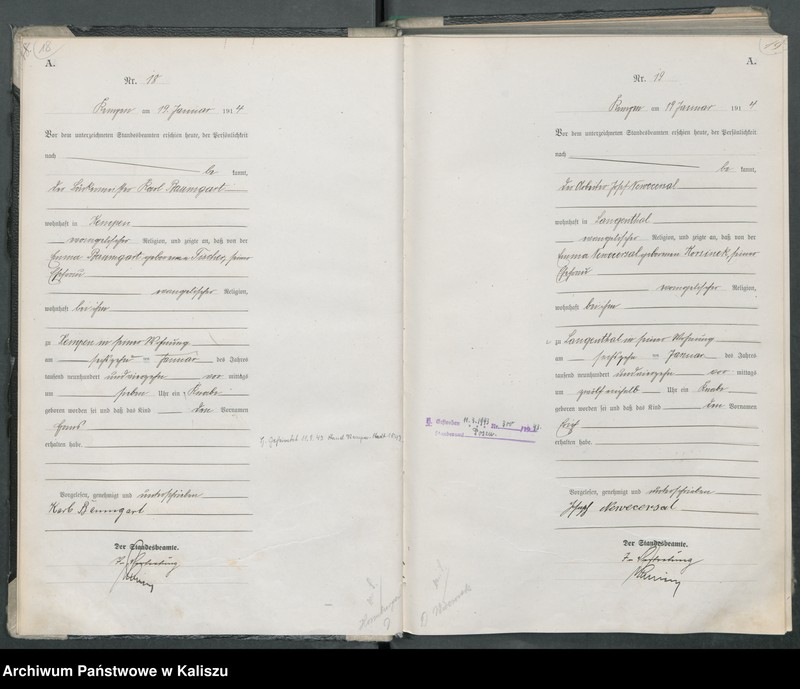 16
A.
Nr. 18
Kempen am 19. Januar 1914
Vor dem unterzeichneten Standesbeamten erschien heute, der Persönlichkeit
nach
be kannt,
Der Karl Baumgart
wohnhaft in Kempen
evangelischer Religion, und zeigte an, daß von der
Emma Baumgart geborenen Fischer, seiner
Ehefrau
evangelischer Religion,
wohnhaft bei ihm
zu Kempen in seiner Wohnung
am sechzehn ten Januar des Jahres
tausend neunhundert und vierzehn vor mittags
um sieben Uhr ein Knabe
geboren worden sei und daß das Kind den Vornamen
erhalten habe.
Vorgelesen, genehmigt und unterschrieben
Karl Baumgart
Der Standesbeamte.
In Vertretung
A.
Nr. 19
Kempen am 19 Januar 1914
Vor dem unterzeichneten Standesbeamten erschien heute, der Persönlichkeit
nach
be kannt,
Der Arbeiter Josef Newecersal
wohnhaft in Langenthal
evangelischer Religion, und zeigte an, daß von der
Emma Newecersal geborenen seiner
Ehefrau
evangelischer Religion,
wohnhaft bei ihm
zu Langenthal in seiner Wohnung
am sechzehn ten Januar des Jahres
tausend neunhundert und vierzehn vor mittags
um Uhr ein Knabe
geboren worden sei und daß das Kind den Vornamen
erhalten habe.
Vorgelesen, genehmigt und unterschrieben
Josef Newecersal
Der Standesbeamte.
In Vertretung
Archiwum Państwowe w Kaliszu